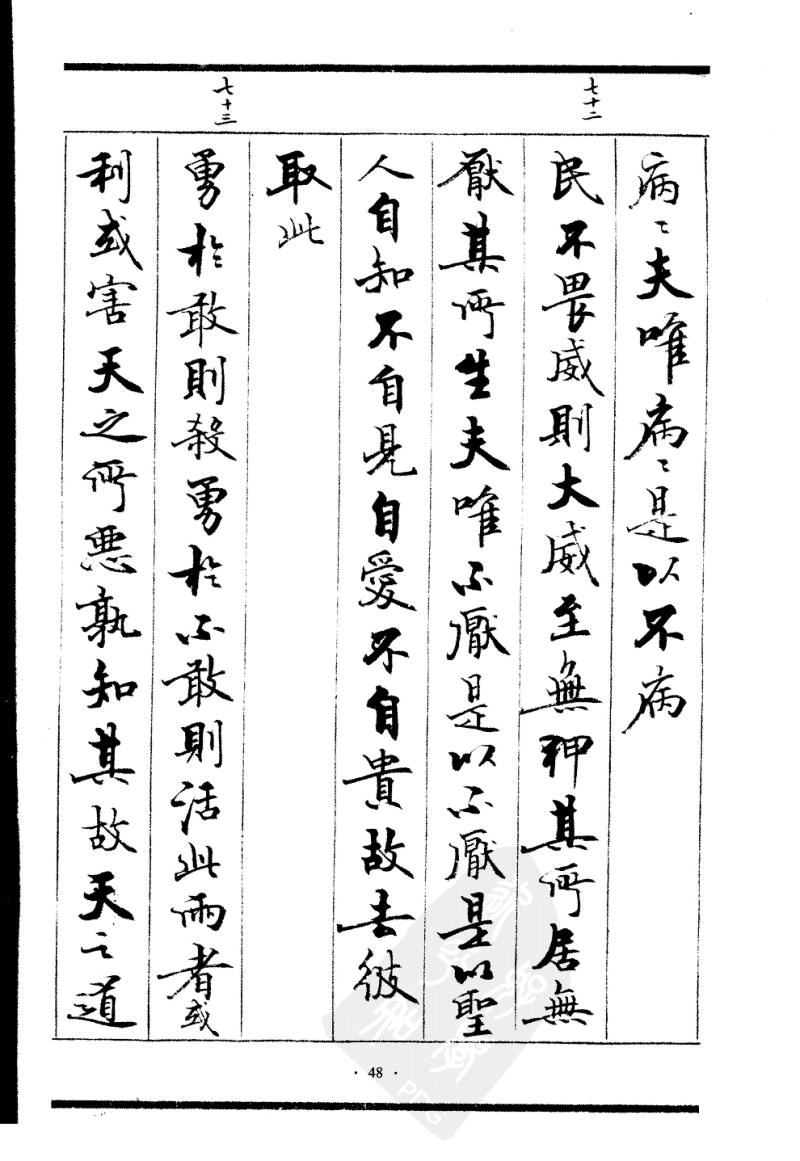 七十二
七十三
病〻夫唯病〻是以不病
民不畏威則大威至無狎其所居無
厭其所生夫唯不厭是以不厭是以聖
人自知不自見自愛不自貴故去彼
取此
勇於敢則殺勇於不敢則活此兩者或
利或害天之所惡孰知其故天之道
· 48 ·
PDG